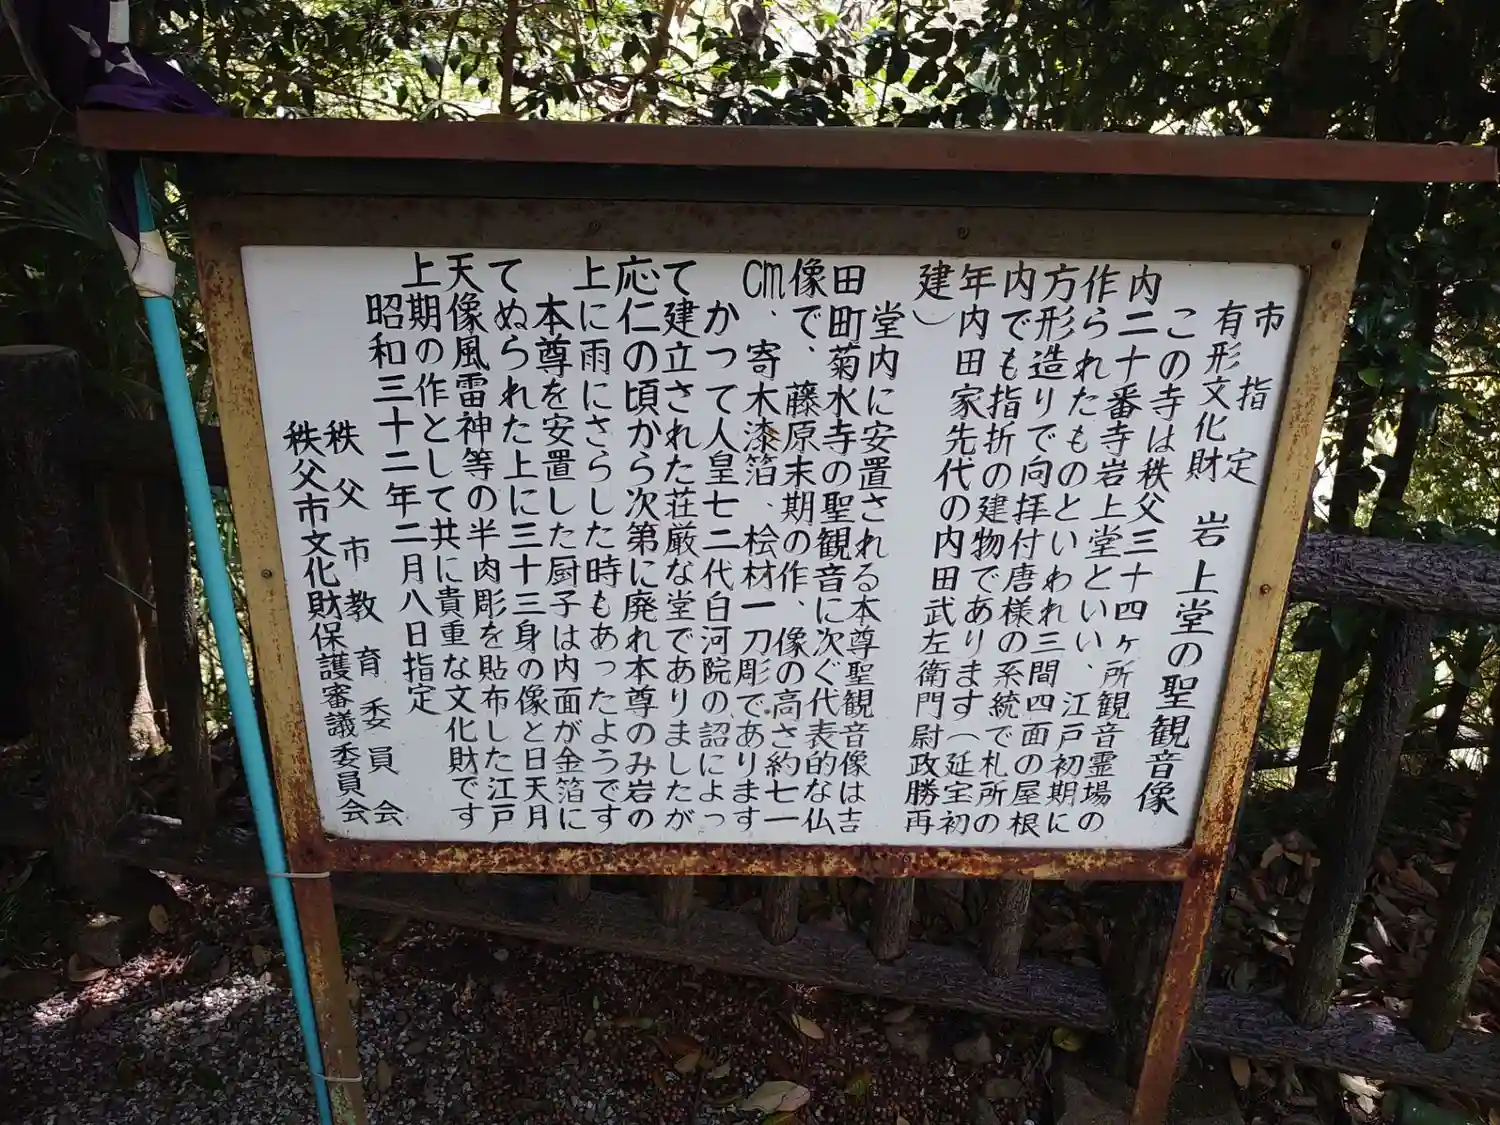 市指定
有形文化財　岩上堂の聖観音像
この寺は秩父三十四ヶ所観音霊場の
内二十番寺岩上堂といい、江戸初期に
作られたものといわれ三間四面の屋根
方形造りで向拝付唐様の系統で札所の
内でも指折の建物であります（延宝初
年内田家先代の内田武左衛門尉政勝再
建）
堂内に安置される本尊聖観音像は吉
田町菊水寺の聖観音に次ぐ代表的な仏
像で、藤原末期の作、像の高さ約七一
cm、寄木漆箔、桧材一刀彫であります
かつて人皇七二代白河院の詔によっ
て建立された荘厳な堂でありましたが
応仁の頃から次第に廃れ本尊のみ岩の
上に雨にさらした時もあったようです
本尊を安置した厨子は内面が金箔に
てぬられた上に三十三身の像と日天月
天像風雷神等の半肉彫を貼布した江戸
上期の作として共に貴重な文化財です
昭和三十二年二月八日指定
秩父市教育委員会
秩父市文化財保護審議委員会